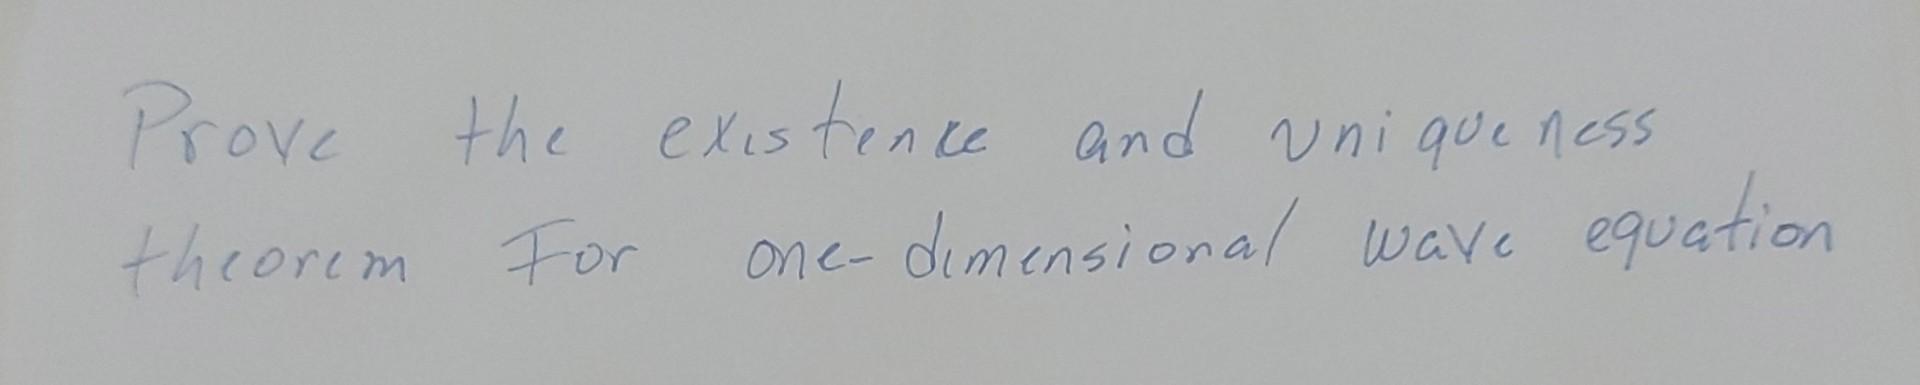 Prove the existence and uniqueness
theorem For one-dimensional wave equation